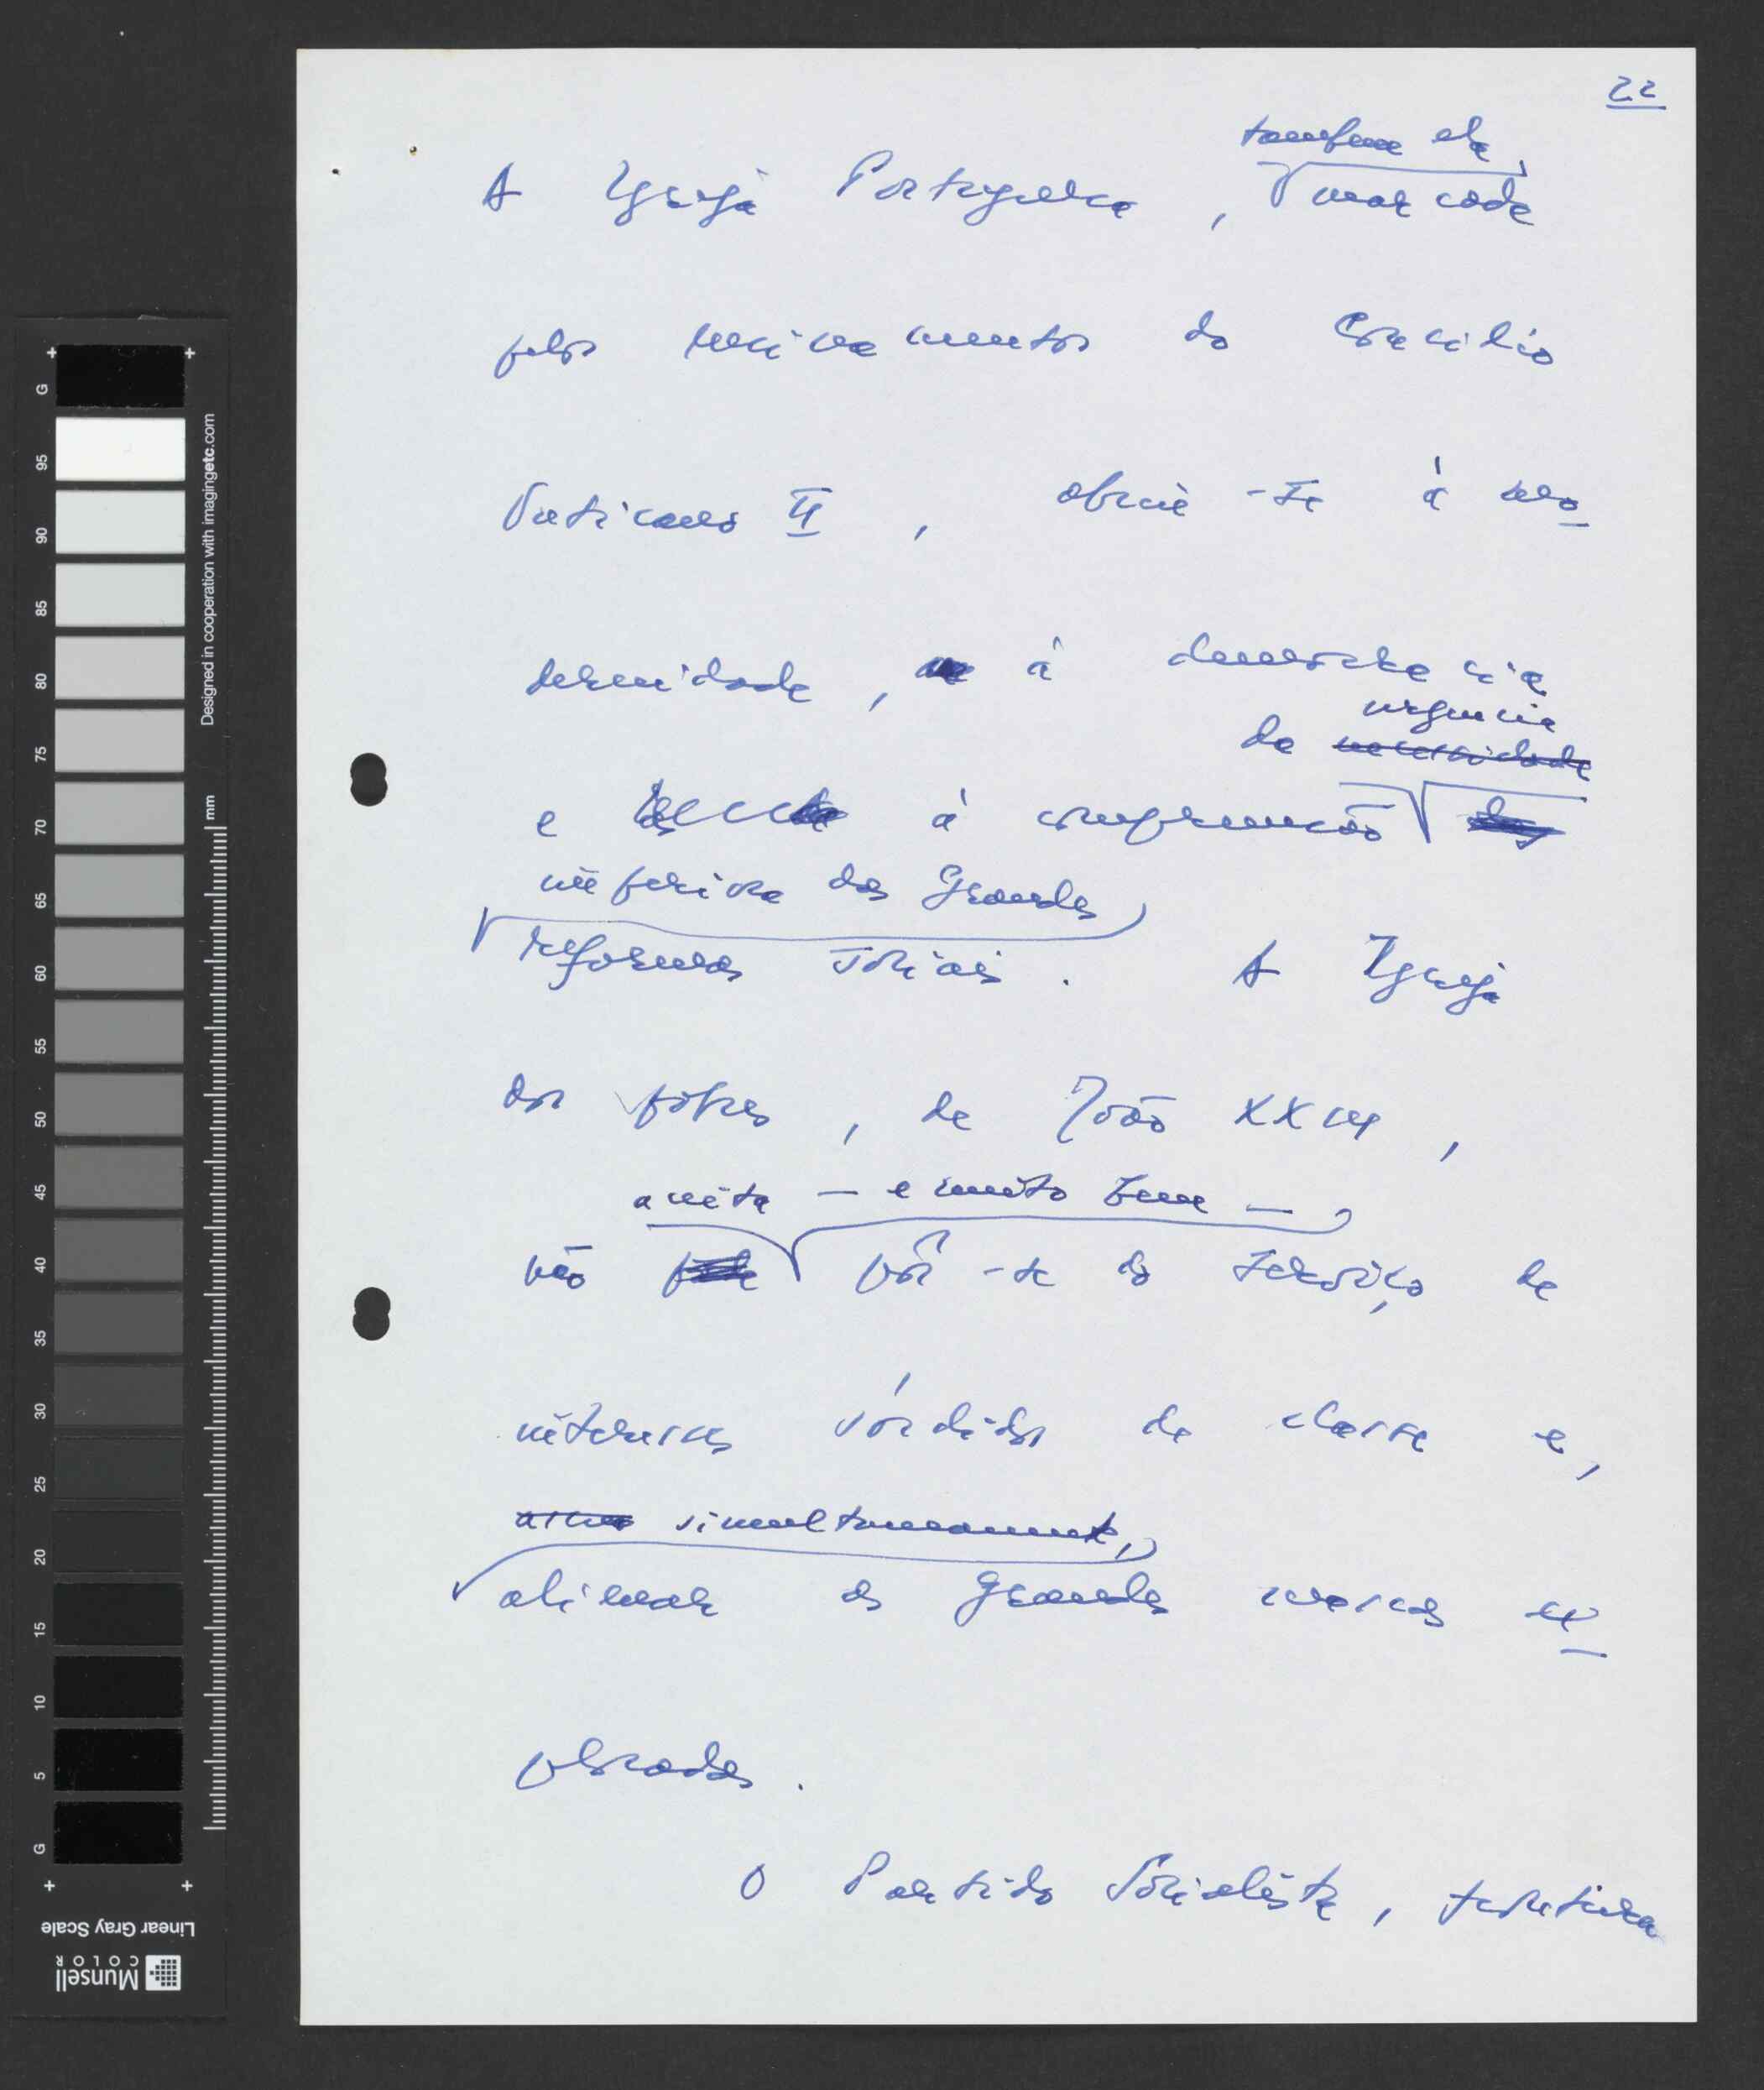 22
também ela,
A Igreja Portuguesa, marcada
pelos ensinamentos do Concílio
Vaticano II, abriu-se à mo
dernidade, à democracia
urgência
da necessidade
e à compreensão das
imperiosa das grandes
reformas sociais. A Igreja
dos pobres, de João XXIII,
aceita — e muito bem —
não pode pôr-se ao serviço de
interesses sórdidos de classe e,
assim simultaneamente,
alienar as grandes massas ex
ploradas.
O Partido Socialista,
Designed in cooperation with imagingetc.com
mm
G
95
90
85
80
75
70
65
60
55
50
45
40
35
30
25
20
15
10
5
G
Linear Gray Scale
Munsell
COLOR